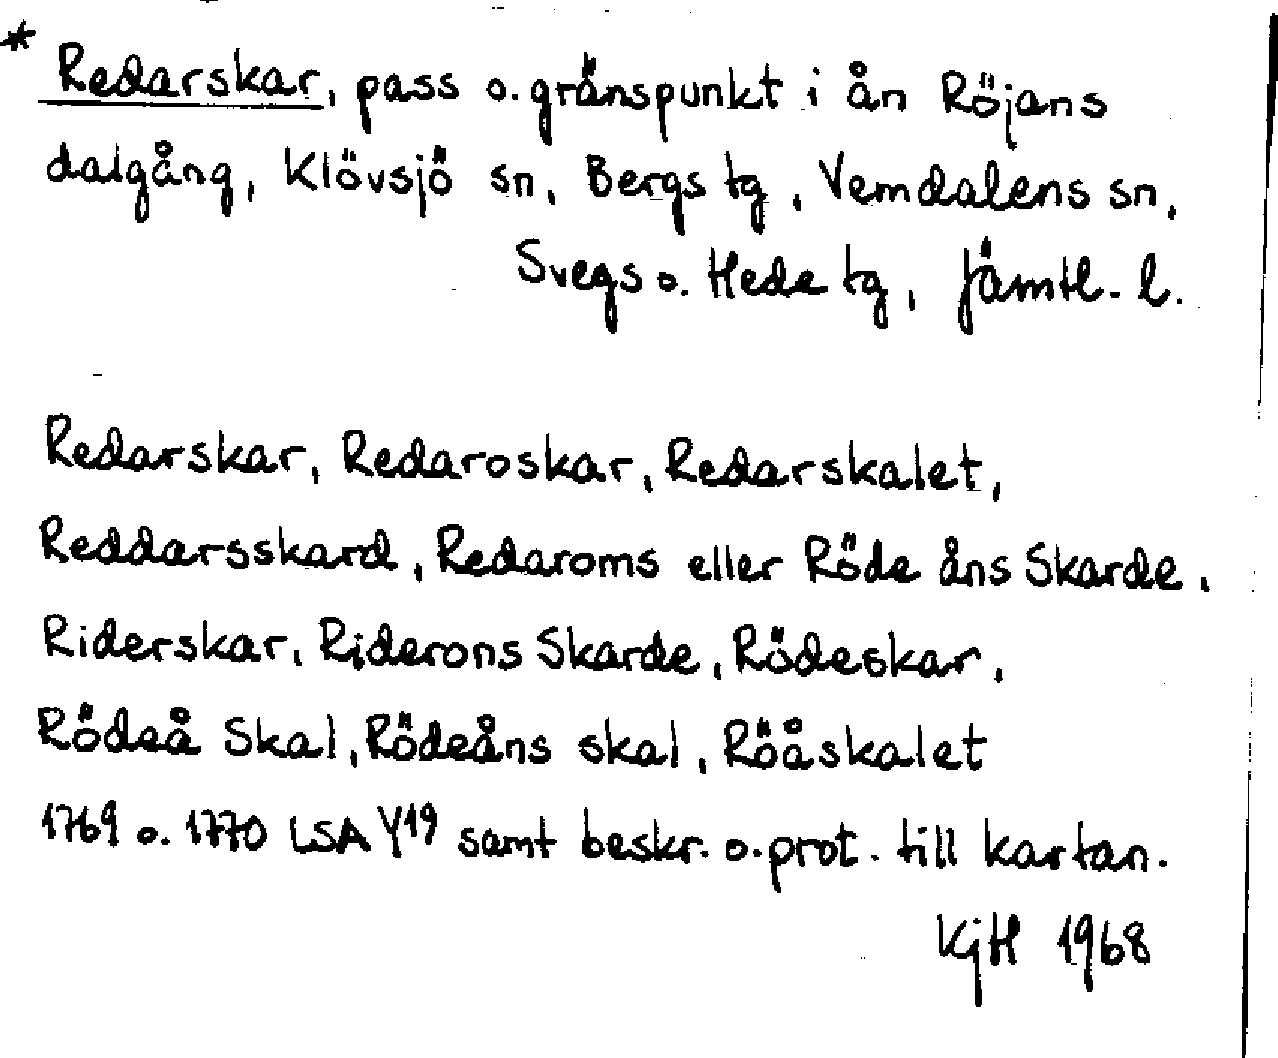 * Redarskar, pass o. gränspunkt i ån Röjans
dalgång, Klövsjö sn, Bergs tg, Vemdalens sn,
Svegs o. Hede tg, Jämtl. l.
Redarskar, Redaroskar, Redarskalet,
Reddarsskard, Redaroms eller Röde åns Skarde,
Riderskar, Riderons Skarde, Rödeskar,
Rödeå Skal, Rödeåns skal, Röåskalet
1769 o. 1770 LSA Y19 samt beskr. o. prot. till kartan.
KjH 1968